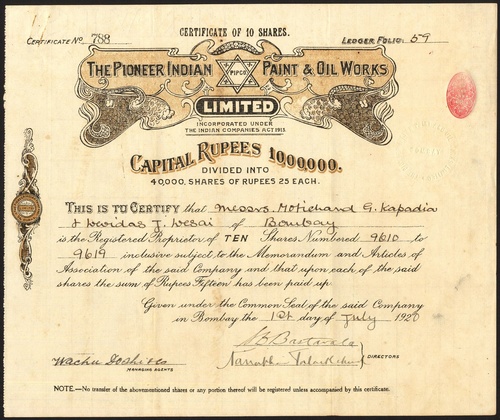 CERTIFICATE OF 10 SHARES.
CERTIFICATE No 788
LEDGER FOLIO: 59
THE PIONEER INDIAN PAINT & OIL WORKS
LIMITED
INCORPORATED UNDER
THE INDIAN COMPANIES ACT 1913
CAPITAL RUPEES 1000000.
DIVIDED INTO
40,000, SHARES OF RUPEES 25 EACH.
THIS IS TO CERTIFY that Messrs. Motichand G. Kapadia
& Devidas J. Desai of Bombay
is the Registered Proprietor of TEN Shares Numbered 9610 to
9619 inclusive subject to the Memorandum and Articles of
Association of the said Company and that upon each of the said
shares the sum of Rupees Fifteen has been paid up.
Given under the Common Seal of the said Company
in Bombay the 1st day of July 1920
DIRECTORS
MANAGING AGENTS
NOTE.—No transfer of the abovementioned shares or any portion thereof will be registered unless accompanied by this certificate.